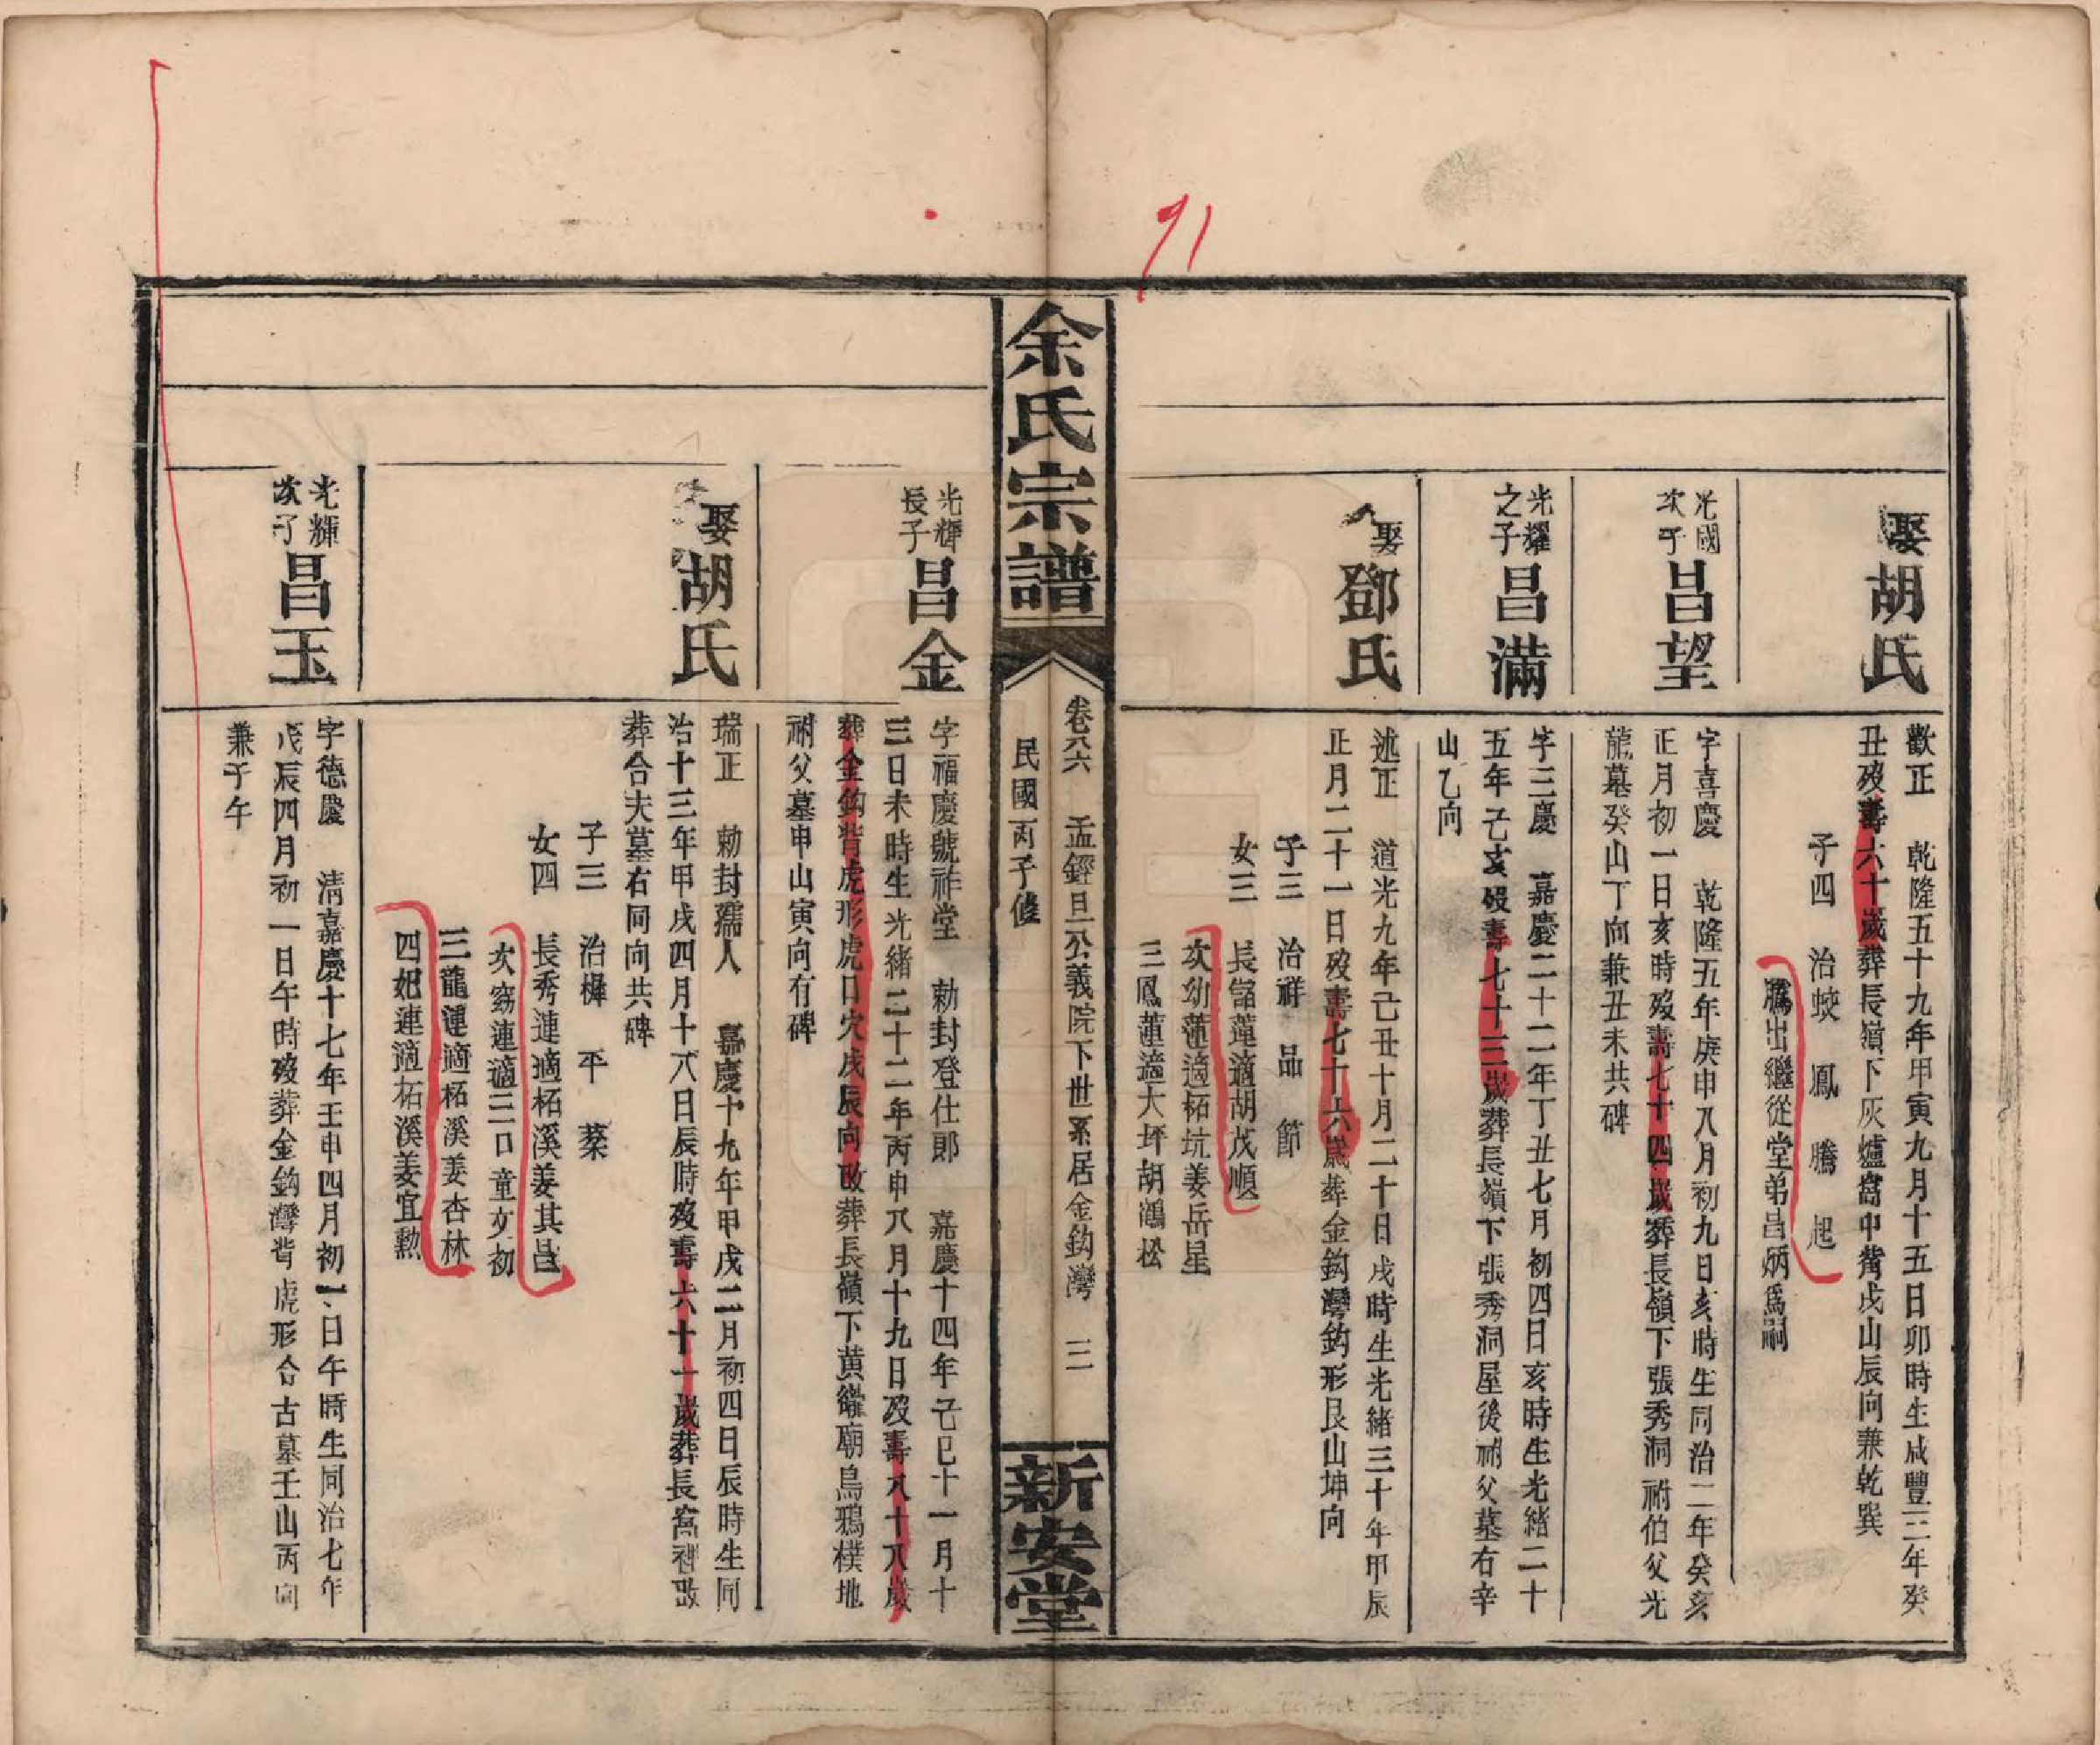 71
娶胡氏
歡正 乾隆五十九年甲寅九月十五日卯時生咸豐三年癸
丑歿壽六十歲葬長嶺下灰爐窩中嘴戌山辰向兼乾巽
子四 治蛟 鳳 騰 起
騰出繼從堂弟昌炳爲嗣
光國
次子
昌望
字喜慶 乾隆五年庚申八月初九日亥時生同治二年癸亥
正月初一日亥時歿壽七十四歲葬長嶺下張秀洞祔伯父光
龍墓癸山丁向兼丑未共碑
光耀
之子
昌滿
字三慶 嘉慶二十二年丁丑七月初四日亥時生光緒二十
五年乙亥歿壽七十三歲葬長嶺下張秀洞屋後祔父墓右辛
山乙向
娶鄧氏
述正 道光九年己丑十月二十日戌時生光緒三十年甲辰
正月二十一日歿壽七十六歲葬金鈎灣鈎形艮山坤向
子三 治祥 品 節
女三 長留蓮適胡茂順
次幼蓮適柘坑姜岳星
三鳳蓮適大坪胡鶴松
余氏宗譜
卷六六 孟經旦公義院下世系居金鈎灣 三
民國丙子修
新安堂
光輝
長子
昌金
字福慶號祚堂 勅封登仕郎 嘉慶十四年己巳十一月十
三日未時生光緒二十二年丙申八月十九日歿壽八十八歲
葬金鈎背虎形虎口穴戌辰向改葬長嶺下黃繼廟烏鴉樸地
祔父墓申山寅向有碑
娶胡氏
瑞正 勅封孺人 嘉慶十九年甲戌二月初四日辰時生同
治十三年甲戌四月十六日辰時歿壽六十一歲葬長窩裡改
葬合夫墓右同向共碑
子三 治樨 平 棻
女四 長秀連適柘溪姜其昌
次窈連適三口童文初
三龍連適柘溪姜杏林
四妃連適柘溪姜宜勲
光輝
次子
昌玉
字德慶 清嘉慶十七年壬申四月初一日午時生同治七年
戊辰四月初一日午時歿葬金鈎灣背虎形合古墓壬山丙向
兼子午